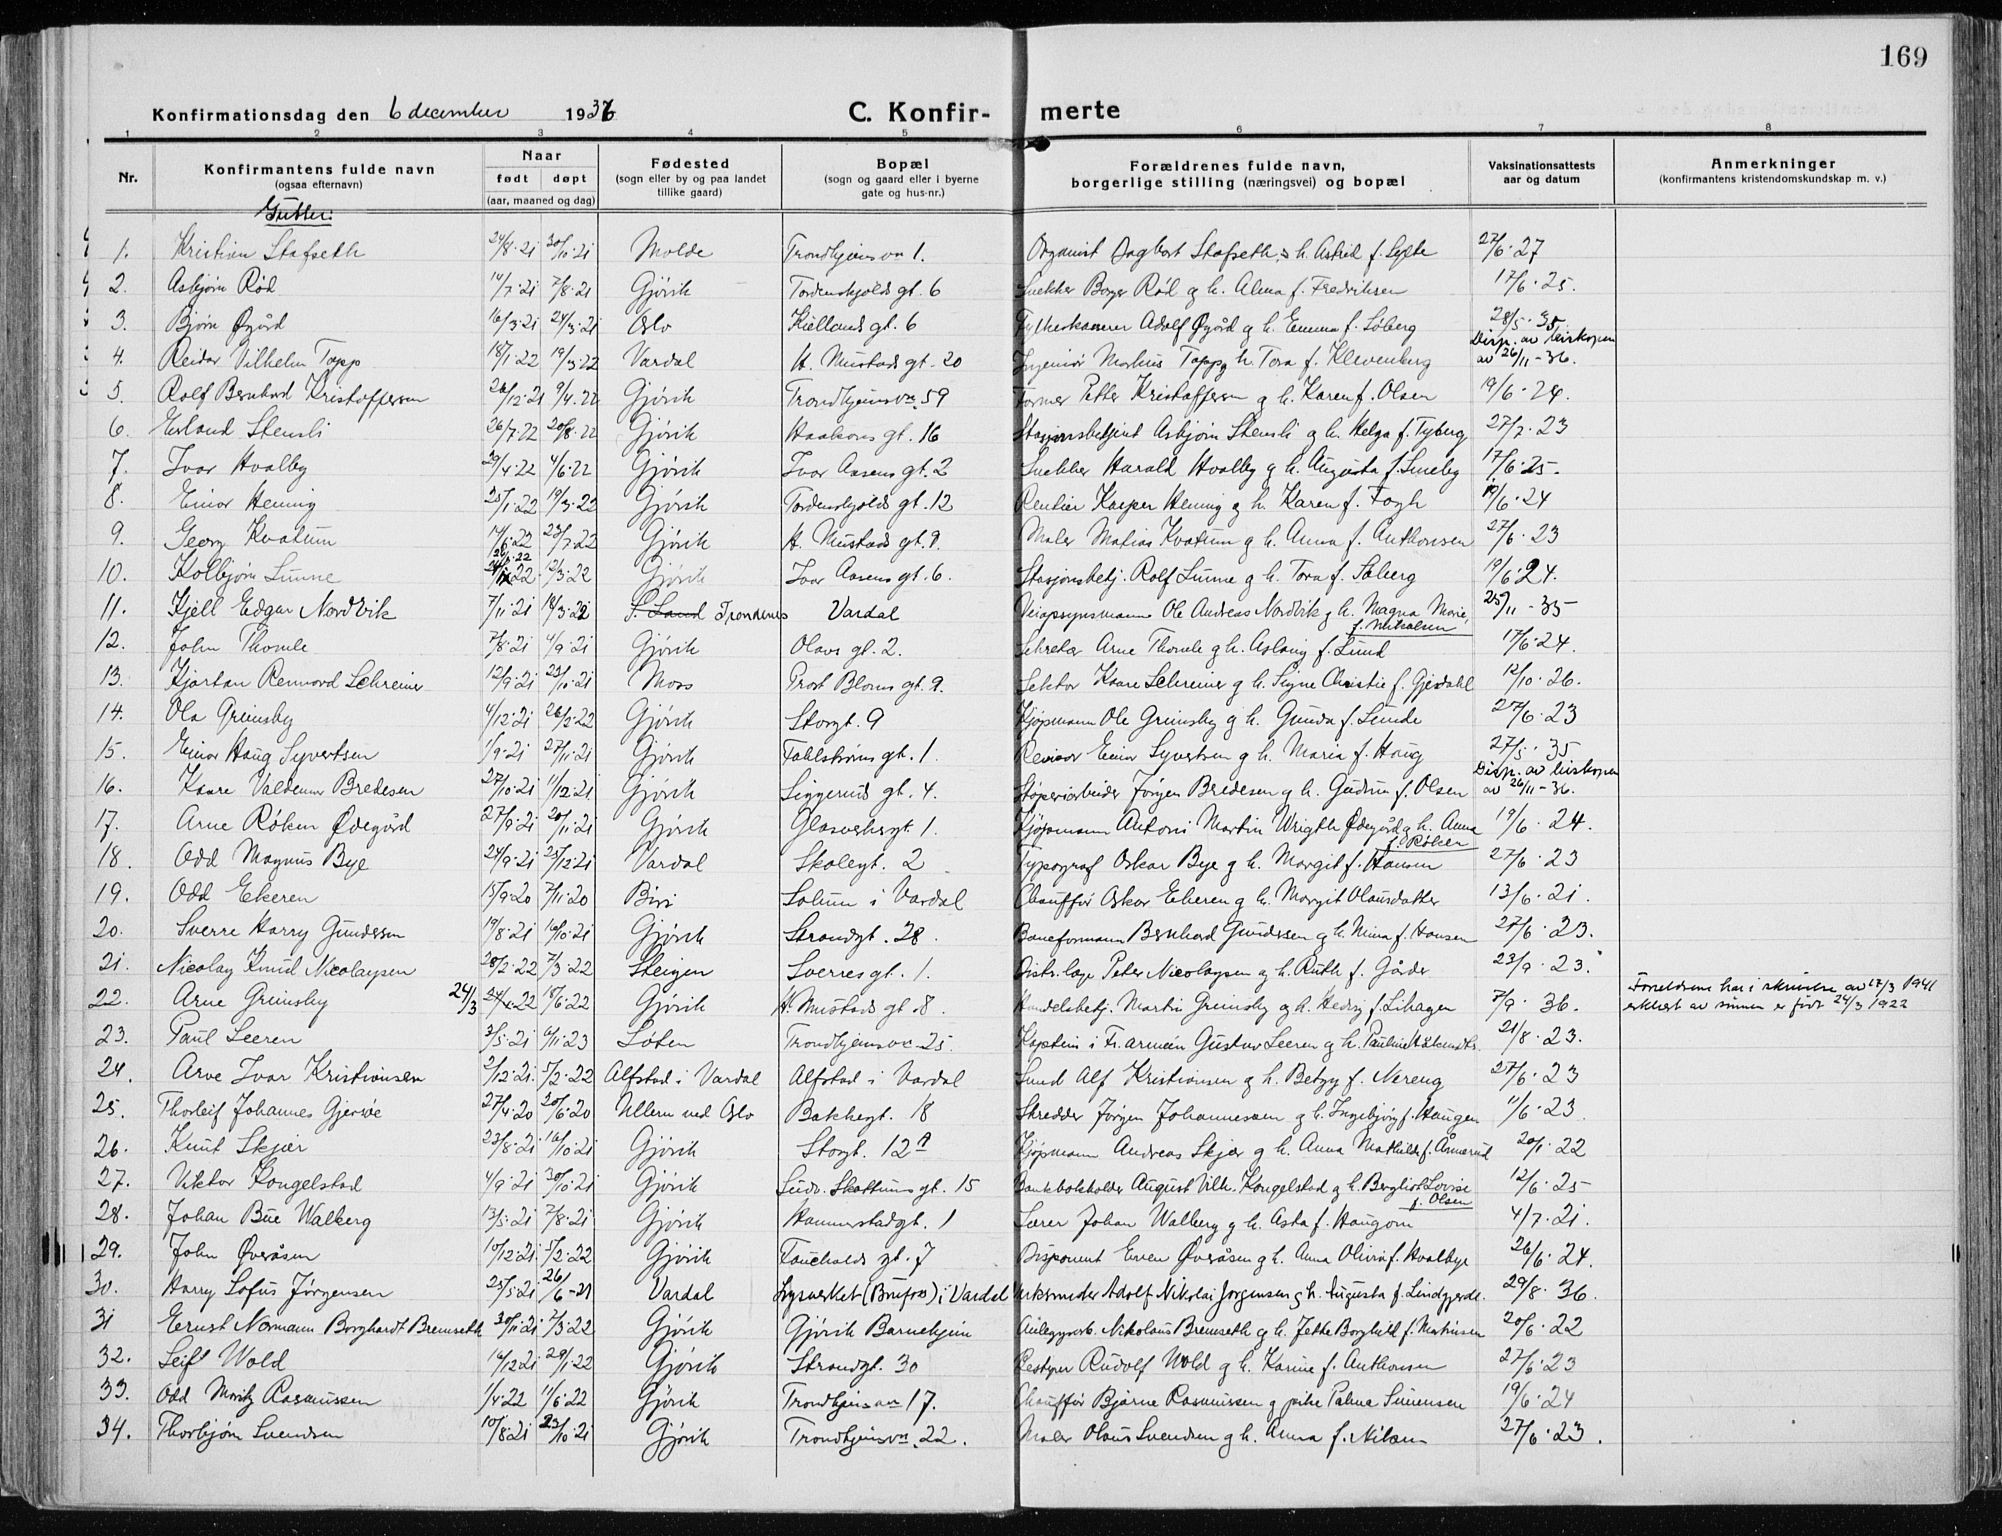 169
Konfirmationsdag den 6 december 1936
C. Konfirmerte
1 2 3 4 5 6 7 8
Nr. Konfirmantens fulde navn (ogsaa efternavn) Naar født døpt (aar, maaned og dag) Fødested (sogn eller by og paa landet tillike gaard) Bopæl (sogn og gaard eller i byerne gate og hus-nr.) Forældrenes fulde navn, borgerlige stilling (næringsvei) og bopæl Vaksinationsattests aar og datum Anmerkninger (konfirmantens kristendomskundskap m. v.)
Gutter:
1. Kristian Stafseth 24/8·21 30/10·21 Molde Trondhjemsvn 1. Organist Dagbert Stafseth, h. Astrid f. 27/6·27
2. Asbjørn Rød 14/7·21 7/8·21 Gjøvik Tordenskjolds gt. 6 Snekker Borger Rød g h. Alma f. Fredriksen 17/6·25.
3. Bjørn Øgård 16/3·21 24/3·21 Oslo Kiellands gt. 6 Fylkeskaserer Adolf Øgård g h. Emma f. Loberg 28/5·35
4. Reidar Vilhelm Topp 18/1·22 19/3·22 Vardal H. Mustads gt. 20 Ingeniør Markus Topp g h. Tora f. Klevenberg Disp. av biskopen av 26/11-36.
5. Rolf Bernhard Kristoffersen 26/12·21 9/4·22 Gjøvik Trondhjemsvn. 59 Former Petter Kristoffersen g h. Karen f. Olsen 19/6·24.
6. Erland Stensli 26/7·22 20/8·22 Gjøvik Haakons gt. 16 Stasjonsbetjent Asbjørn Stensli g h. Helga f. Tyberg 27/7·23
7. Ivar Hvalby 29/4·22 4/6·22 Gjøvik Ivar Aasens gt. 2 Snekker Harald Hvalby g h. Augusta f. Smeby 17/6·25.
8. Einar Henning 25/1·22 19/3·22 Gjøvik Tordenskjolds gt. 12 Rentier Kasper Henning g h. Karen f. Fogh 19/6·24
9. Georg Kvatum 14/6·22 23/7·22 Gjøvik H. Mustads gt. 9. Maler Matias Kvatum g h. Anna f. Anthonsen 27/6·23
10. Kolbjørn Sunne 12/3·22 Gjøvik Ivar Aasens gt. 6. Stasjonsbetj. Rolf Sunne g h. Tora f. Soberg 19/6·24.
11. Kjell Edgar Nordvik 7/11·21 18/3·22 S. Land Trondenes Vardal Veiopsynsmann Ole Andreas Nordvik g h. Magna Marie, f. Nikolsen 25/11-35
12. John Thomle 7/8·21 4/9·21 Gjøvik Olavs gt. 2. Sekretær Arne Thomle g h. Aslaug f. Lund 17/6·24.
13. Kjartan Rennord Schreiner 12/9·21 23/10·21 Moss Prost Bloms gt. 9. Lektor Kaare Schreiner g h. Signe Christie f. Gjesdahl 12/10·26.
14. Ola Grimsby 4/12·21 26/2·22 Gjøvik Storgt. 9 Kjøpmann Ole Grimsby g h. Gunda f. Lunde 27/6·23
15. Einar Haug Syvertsen 1/9·21 27/11·21 Gjøvik Fahlstrøms gt. 1. Revisor Einar Syvertsen g h. Maria f. Haug 27/5·35
16. Kaare Valdemar Bredesen 27/10·21 11/12·21 Gjøvik Siggerud gt. 4. Støperiarbeider Jørgen Bredesen g h. Gudrun f. Olsen Disp. av biskopen av 26/11-36.
17. Arne Røken Ødegård 27/9·21 20/11·21 Gjøvik Glasverksgt. 1. Kjøpmann Antoni Martin Wrigth Ødegård g h. Anna f. Røken 19/6·24.
18. Odd Magnus Bye 24/9·21 25/12·21 Vardal Skolegt. 2 Typograf Oskar Bye g h. Margit f. Hansen 27/6·23
19. Odd Ekeren 15/9·20 7/11·20 Biri Solum i Vardal Chauffør Oskar Ekeren g h. Margit Olausdatter 13/6·21.
20. Sverre Harry Gundersen 19/8·21 16/10·21 Gjøvik Strandgt. 28. Baneformann Bernhard Gundersen g h. Nina f. Hansen 27/6·23.
21. Nicolay Knud Nicolaysen 28/2·22 7/3·22 Steigen Sverres gt. 1. Distr.læge Peter Nicolaysen g h. Ruth f. Gårder 23/9·23.
22. Arne Grimsby 24/3 24/4·22 18/6·22 Gjøvik H. Mustads gt. 8. Handelsbetj. Martin Grimsby g h. Hedvig f. Lihagen 7/9·36. Foreldrene har i skrivelse av 17/3 1941 erklært at sønnen er født 24/3 1922
23. Paul Leeren 3/5·21 6/11·23 Løten Trondhjemsvn. 25. Kaptein i Fr.armeén Gustav Leeren g h. Pauline 21/8·23.
24. Arve Ivar Kristiansen 2/12·21 5/2·22 Alfstad i Vardal Alfstad i Vardal Smed Alf Kristiansen g h. Betzy f. Nereng 27/6·23
25. Thorleif Johannes Gjerløe 27/4·20 20/6·20 Ullern ved Oslo Bakkegt. 18 Skredder Jørgen Johannessen g h. Ingebjørg f. Haugen 11/6·23
26. Knut Skjær 23/8·21 16/10·21 Gjøvik Storgt. 12 a Kjøpmann Andreas Skjær g h. Anna Mathilde f. Ånnerud 20/1·22
27. Viktor Kongelstad 4/9·21 30/10·21 Gjøvik Gudr. Skattums gt. 15 Bankbokholder August Vilh. Kongelstad g h. Bergliot Lovise f. Olsen 12/6·25
28. Johan Bue Walberg 13/5·21 7/8·21 Gjøvik Hammerstadgt. 1 Lærer Johan Walberg g h. Asta f. Haugom 4/7·21.
29. John Øveråsen 10/12·21 5/2·22 Gjøvik Fauchalds gt. 7 Disponent Even Øveråsen g h. Anna Olivia f. Hvalbye 26/6·24.
30. Harry Lofus Jørgensen 25/5·21 26/6-21 Vardal Lysverket (Brufoss) i Vardal Adolf Nikolai Jørgensen g h. Augusta f. Lindgjerde. 29/8·36.
31 Ernst Normann Borghardt Bremseth 30/11·21 7/5·22 Gjøvik Gjøvik Barnehjem Anleggsarb. Nikolaus Bremseth g h. Jette Borghild f. Martinsen 20/6·22
32. Leif Wold 16/12·21 29/1·22 Gjøvik Strandgt. 30 Bestyrer Rudolf Wold g h. Karine f. Anthonsen 27/6·23
33. Odd Moritz Rasmussen 1/4·22 11/6·22 Gjøvik Trondhjemsvn 17. Chauffør Bjarne Rasmussen g pike Palma Simensen 19/6·24
34. Thorbjørn Svendsen 10/8·21 23/10·21 Gjøvik Trondhjemsvn. 22. Maler Olaus Svendsen g h. Anna f. Nilsen 27/6·23.